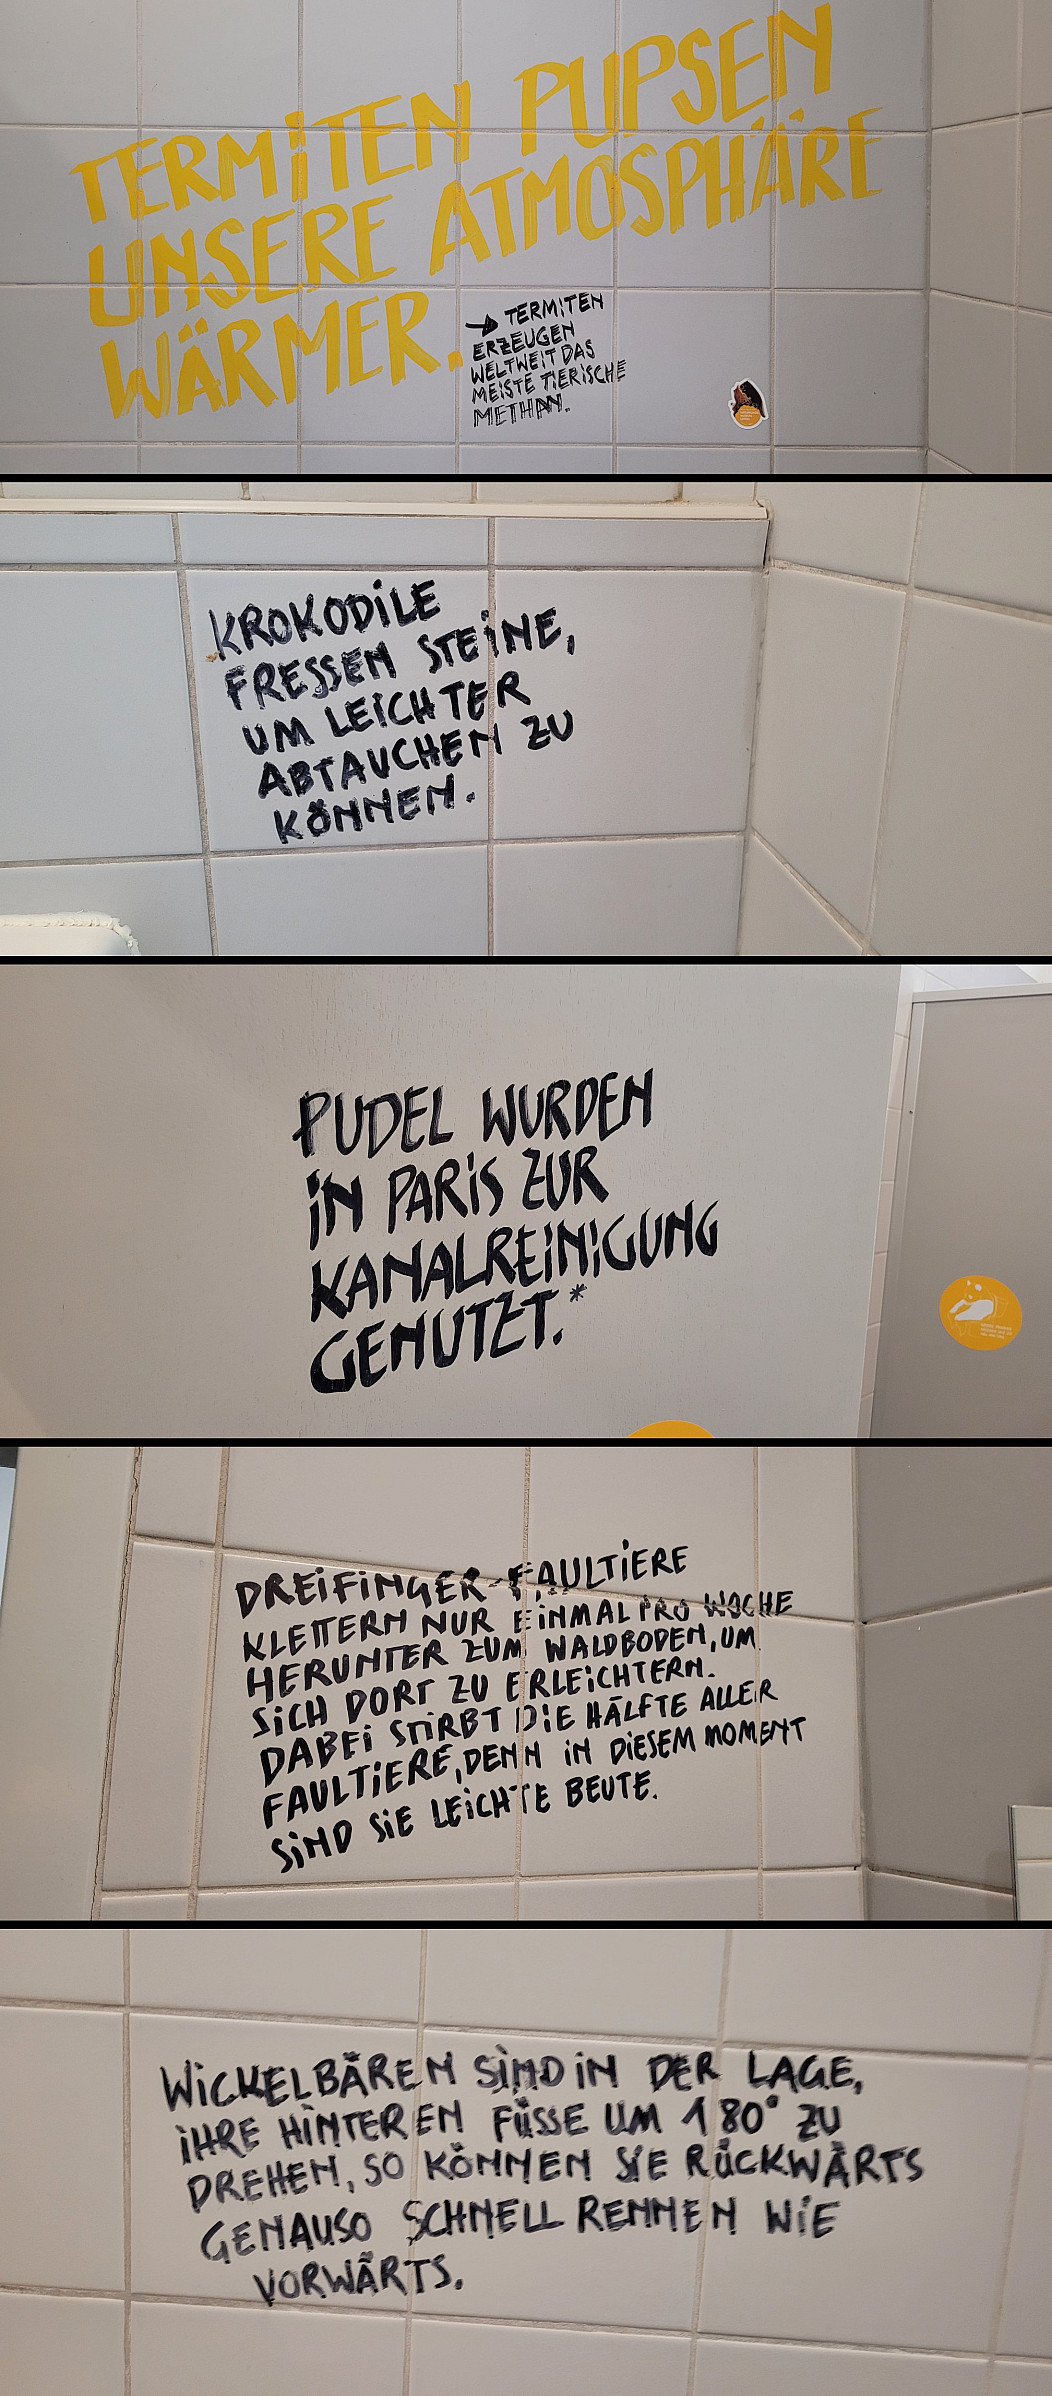 TERMITEN PUPSEN
UNSERE ATMOSPHÄRE
WÄRMER.
→ TERMITEN
ERZEUGEN
WELTWEIT DAS
MEISTE TIERISCHE
METHAN.
KROKODILE
FRESSEN STEINE,
UM LEICHTER
ABTAUCHEN ZU
KÖNNEN.
PUDEL WURDEN
IN PARIS ZUR
KANALREINIGUNG
GENUTZT.*
DREIFINGER-FAULTIERE
KLETTERN NUR EINMAL PRO WOCHE
HERUNTER ZUM WALDBODEN, UM
SICH DORT ZU ERLEICHTERN.
DABEI STIRBT DIE HÄLFTE ALLER
FAULTIERE, DENN IN DIESEM MOMENT
SIND SIE LEICHTE BEUTE.
WICKELBÄREN SIND IN DER LAGE,
IHRE HINTEREN FÜSSE UM 180° ZU
DREHEN, SO KÖNNEN SIE RÜCKWÄRTS
GENAUSO SCHNELL RENNEN WIE
VORWÄRTS.